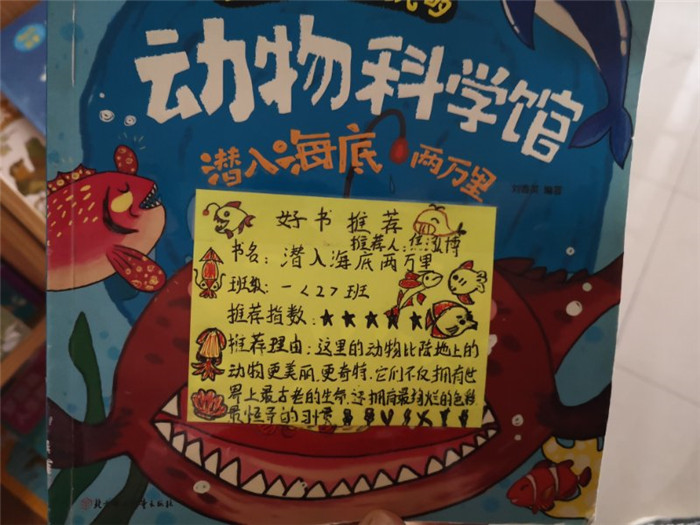 动物科学馆
潜入海底两万里
编著
好书推荐
推荐人:焦浚博
书名:潜入海底两万里
班级:一<2>班
推荐指数:★★★★★
推荐理由:这里的动物比陆地上的
动物更美丽,更奇特.它们不仅拥有世
界上最古老的生命.还拥有最绚烂的色彩
最怪异的习惯